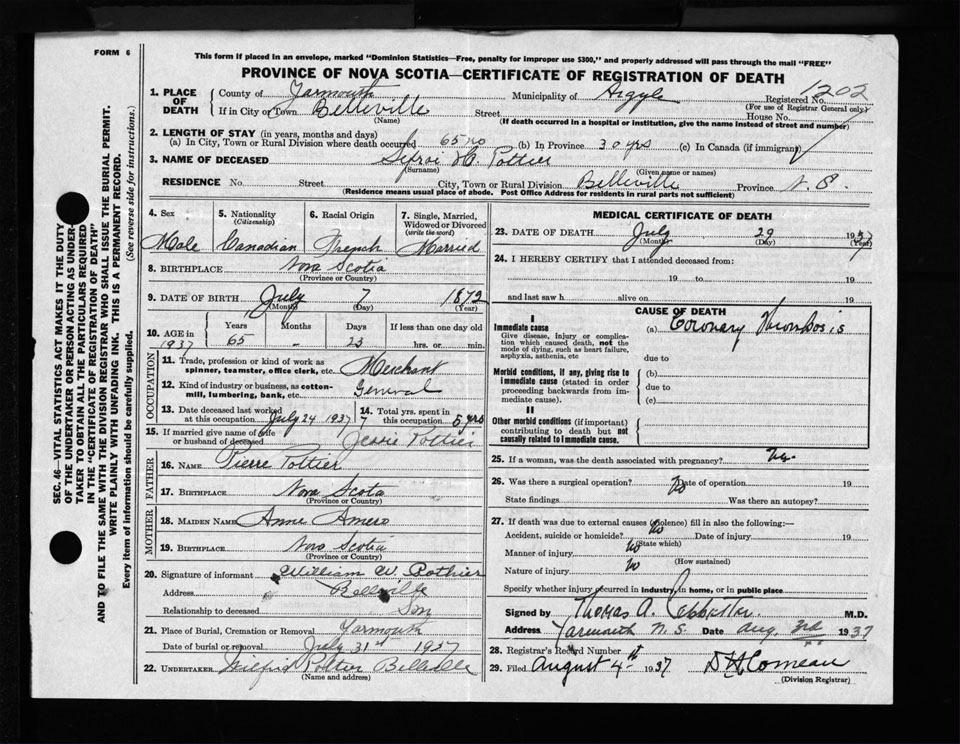 FORM 6
This form if placed in an envelope, marked "Dominion Statistics—Free, penalty for improper use $300," and properly addressed will pass through the mail "FREE"
PROVINCE OF NOVA SCOTIA—CERTIFICATE OF REGISTRATION OF DEATH
1. PLACE OF DEATH
County of Yarmouth Municipality of Argyle Registered No. 1202
(For use of Registrar General only)
If in City or Town Belleville Street House No.
(Name) (If death occurred in a hospital or institution, give the name instead of street and number)
2. LENGTH OF STAY (in years, months and days)
(a) In City, Town or Rural Division where death occurred 65 (b) In Province 30 yrs (c) In Canada (if immigrant)
3. NAME OF DECEASED H. Pottier
(Surname) (Given name or names)
RESIDENCE No. Street City, Town or Rural Division Belleville Province N. S.
(Residence means usual place of abode. Post Office Address for residents in rural parts not sufficient)
4. Sex Male
5. Nationality (Citizenship) Canadian
6. Racial Origin French
7. Single, Married, Widowed or Divorced (write the word) Married
8. BIRTHPLACE Nova Scotia
(Province or Country)
9. DATE OF BIRTH July 7 1872
(Month) (Day) (Year)
10. AGE in 1937
Years Months Days If less than one day old
65 - 23 hrs. or min.
OCCUPATION
11. Trade, profession or kind of work as spinner, teamster, office clerk, etc. Merchant
12. Kind of industry or business, as cotton-mill, lumbering, bank, etc. General
13. Date deceased last worked at this occupation July 24 1937
14. Total yrs. spent in this occupation 5 yrs
15. If married give name of wife or husband of deceased Jessie Pottier
FATHER
16. NAME Pierre Pottier
17. BIRTHPLACE Nova Scotia
(Province or Country)
MOTHER
18. MAIDEN NAME Anne Amero
19. BIRTHPLACE Nova Scotia
(Province or Country)
20. Signature of informant William W. Pothier
Address Belleville
Relationship to deceased Son
21. Place of Burial, Cremation or Removal Yarmouth
Date of burial or removal July 31st 1937
22. UNDERTAKER Wilfred Pottier Belleville
(Name and address)
MEDICAL CERTIFICATE OF DEATH
23. DATE OF DEATH July 29 1937
(Month) (Day) (Year)
24. I HEREBY CERTIFY that I attended deceased from:
19 to 19
and last saw h alive on 19
CAUSE OF DEATH
I
Immediate cause (a) Coronary Thrombosis
Give disease, injury or complication which caused death, not the mode of dying, such as heart failure, asphyxia, asthenia, etc
due to
Morbid conditions, if any, giving rise to immediate cause (stated in order proceeding backwards from immediate cause).
(b)
due to
(c)
II
Other morbid conditions (if important) contributing to death but not causally related to immediate cause.
25. If a woman, was the death associated with pregnancy?
26. Was there a surgical operation? No Date of operation 19
State findings Was there an autopsy?
27. If death was due to external causes (violence) fill in also the following:—
Accident, suicide or homicide? No Date of injury 19
(State which)
Manner of injury No
(How sustained)
Nature of injury No
Specify whether injury occurred in industry, in home, or in public place
Signed by Thomas A. M.D.
Address Yarmouth N. S. Date Aug. 3rd 1937
28. Registrar's Record Number
29. Filed August 4th 1937 Comeau
(Division Registrar)
SEC. 46—VITAL STATISTICS ACT MAKES IT THE DUTY
OF THE UNDERTAKER OR PERSON ACTING AS UNDER-
TAKER TO OBTAIN ALL THE PARTICULARS REQUIRED
IN THE "CERTIFICATE OF REGISTRATION OF DEATH"
AND TO FILE THE SAME WITH THE DIVISION REGISTRAR WHO SHALL ISSUE THE BURIAL PERMIT.
WRITE PLAINLY WITH UNFADING INK. THIS IS A PERMANENT RECORD.
Every item of information should be carefully supplied. (See reverse side for instructions.)